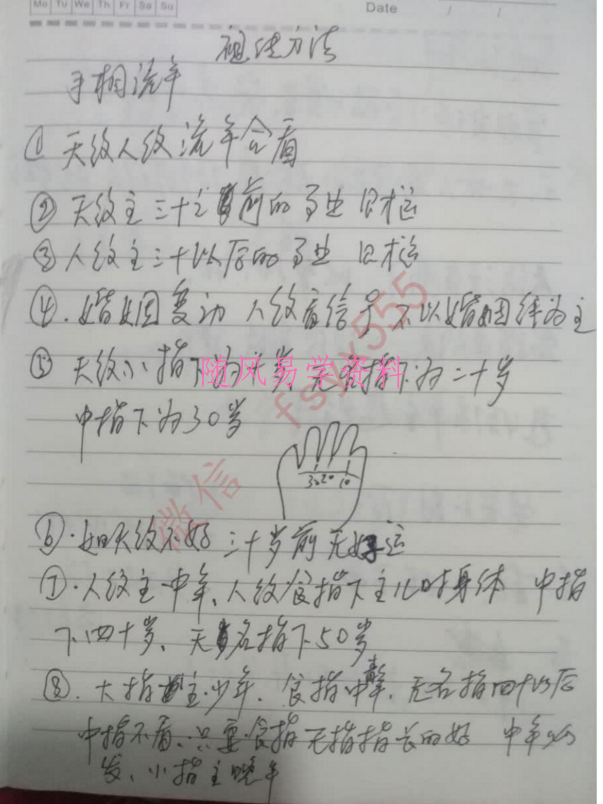 Mo Tu We Th Fr Sa Su
Date / /
方法
手相流年
① 天纹人纹流年合看
② 天纹主三十之前的事业 旧格
③ 人纹主三十以后的事业 旧格
④. 婚姻变动 人纹看信号 不以婚姻线为主
⑤ 天纹小指下为十岁, 无名指下为二十岁
随风易学资料
fsyx555
中指下为30岁
微信
30 20 10
⑥. 如天纹不好 三十岁前无好运
⑦. 人纹主中年、人纹食指下主儿时身体 中指
下四十岁、无名指下50岁
⑧. 大指主少年、食指中年、无名指四十以后
中指不看、只要食指无指指长的好 中年必
发、小指主晚年